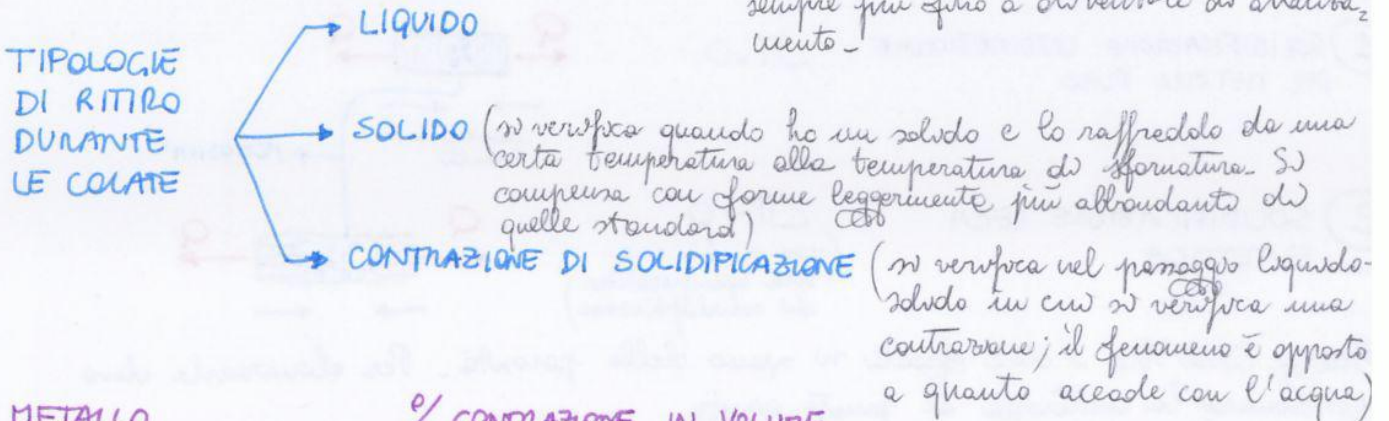 sempre più fino a diventare di avanza=
mento_
TIPOLOGIE
DI RITIRO
DURANTE
LE COLATE
LIQUIDO
SOLIDO (si verifica quando ho un solido e lo raffreddo da una
certa temperatura alla temperatura di sformatura_ Si
compensa con forme leggermente più abbondanti di
quelle standard)
CONTRAZIONE DI SOLIDIFICAZIONE (si verifica nel passaggio liquido-
solido in cui si verifica una
contrazione; il fenomeno è opposto
a quanto accade con l'acqua)
METALLO % CONTRAZIONE IN VOLUME